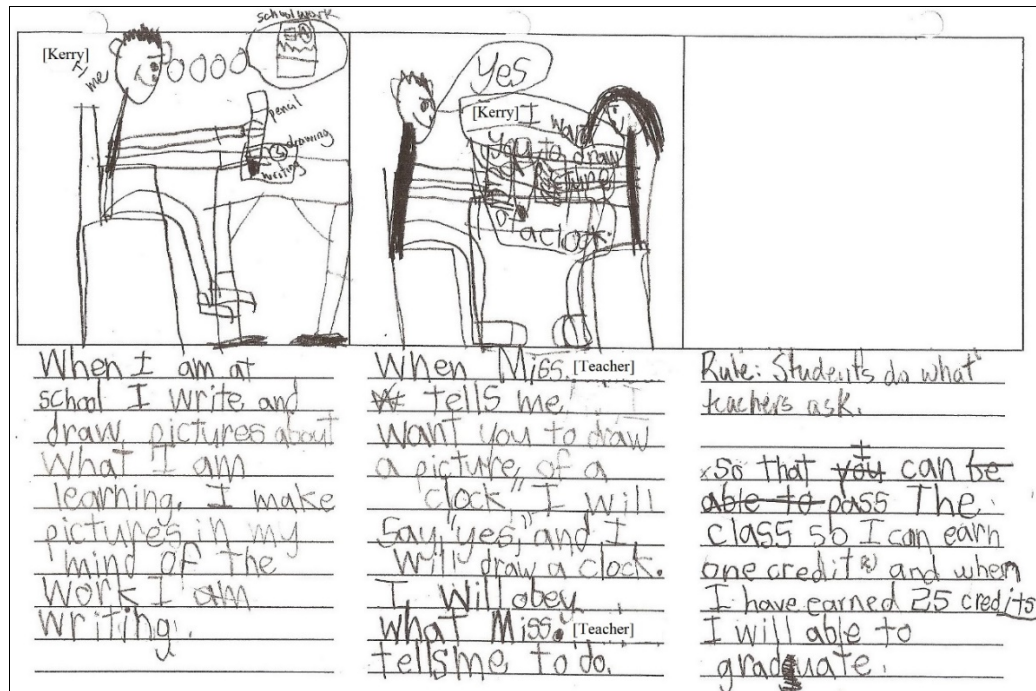 school work
[Kerry]
I
me
pencil
drawing
writing
Yes
[Kerry] I want
you to draw
a clock
When I am at
school I write and
draw pictures about
What I am
learning. I make
pictures in my
mind of the
work I am
writing.
When Miss. [Teacher]
tells me I
want you to draw
a picture of a
clock," I will
say, "yes, and I
will draw a clock.
I will obey
what Miss. [Teacher]
tells me to do.
Rule: Students do what
teachers ask.
I
So that you can be
able to pass The
class so I can earn
one credit and when
I have earned 25 credits
I will able to
graduate.